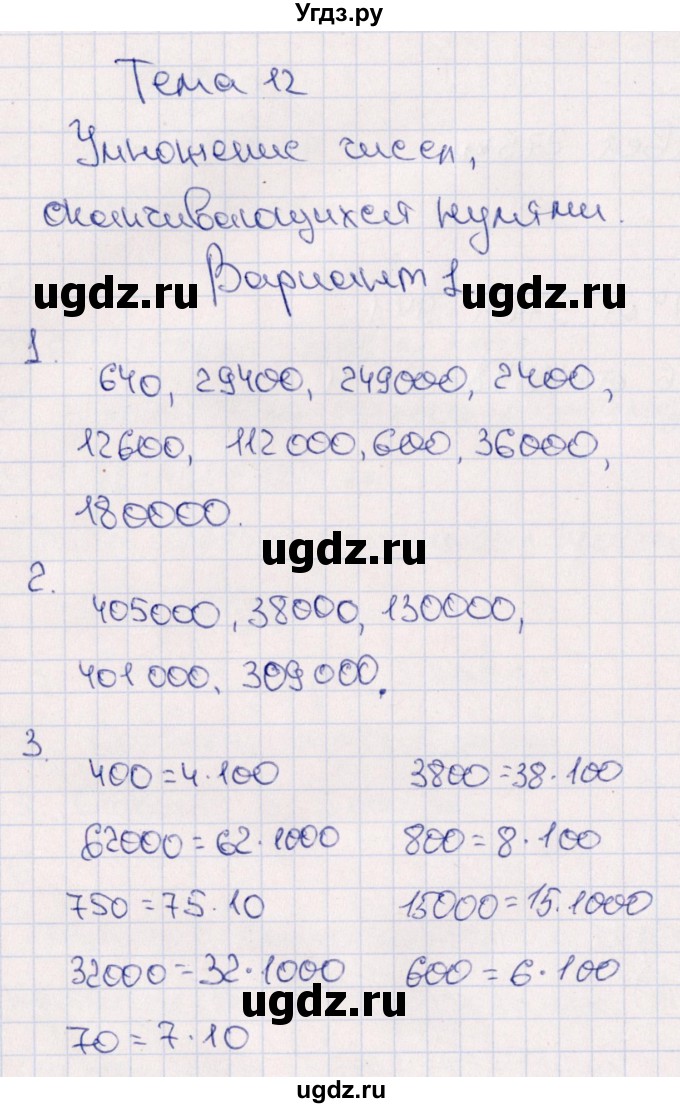 Угдз.ру
Тема 12
Умножение чисел,
оканчивающихся нулями.
Вариант 1
ugdz.ru ugdz.ru
1.
640, 29400, 249000, 2400,
12600, 112000, 600, 36000,
180000.
ugdz.ru
2.
405000, 38000, 130000,
401000, 309000.
3.
400=4·100 3800=38·100
62000=62·1000 800=8·100
750=75·10 15000=15·1000
32000=32·1000 600=6·100
ugdz.ru
70=7·10
ugdz.ru